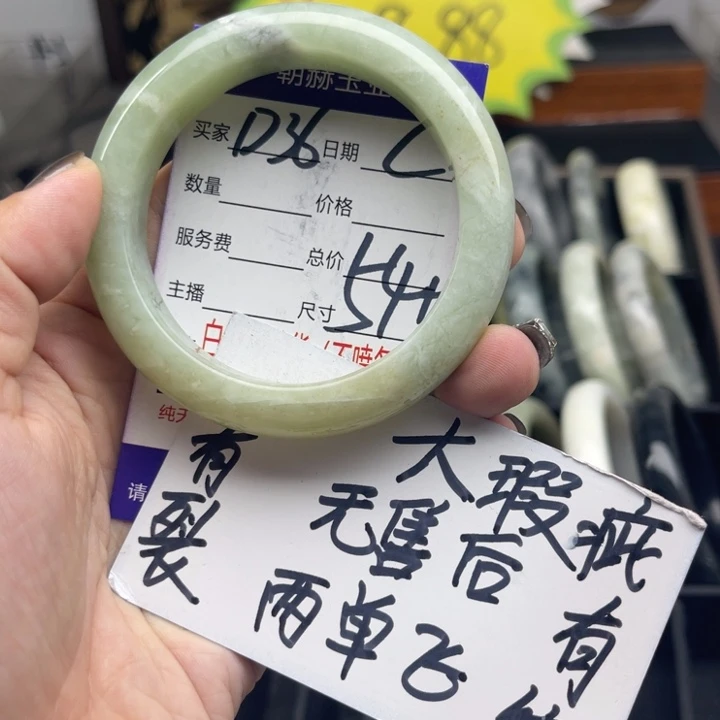 88
朝赫玉业
买家 D36 日期
数量 价格
服务费 总价
主播 尺寸 54
白
不喷
纯天
请
有 大瑕疵
裂 无售后 有
两单飞